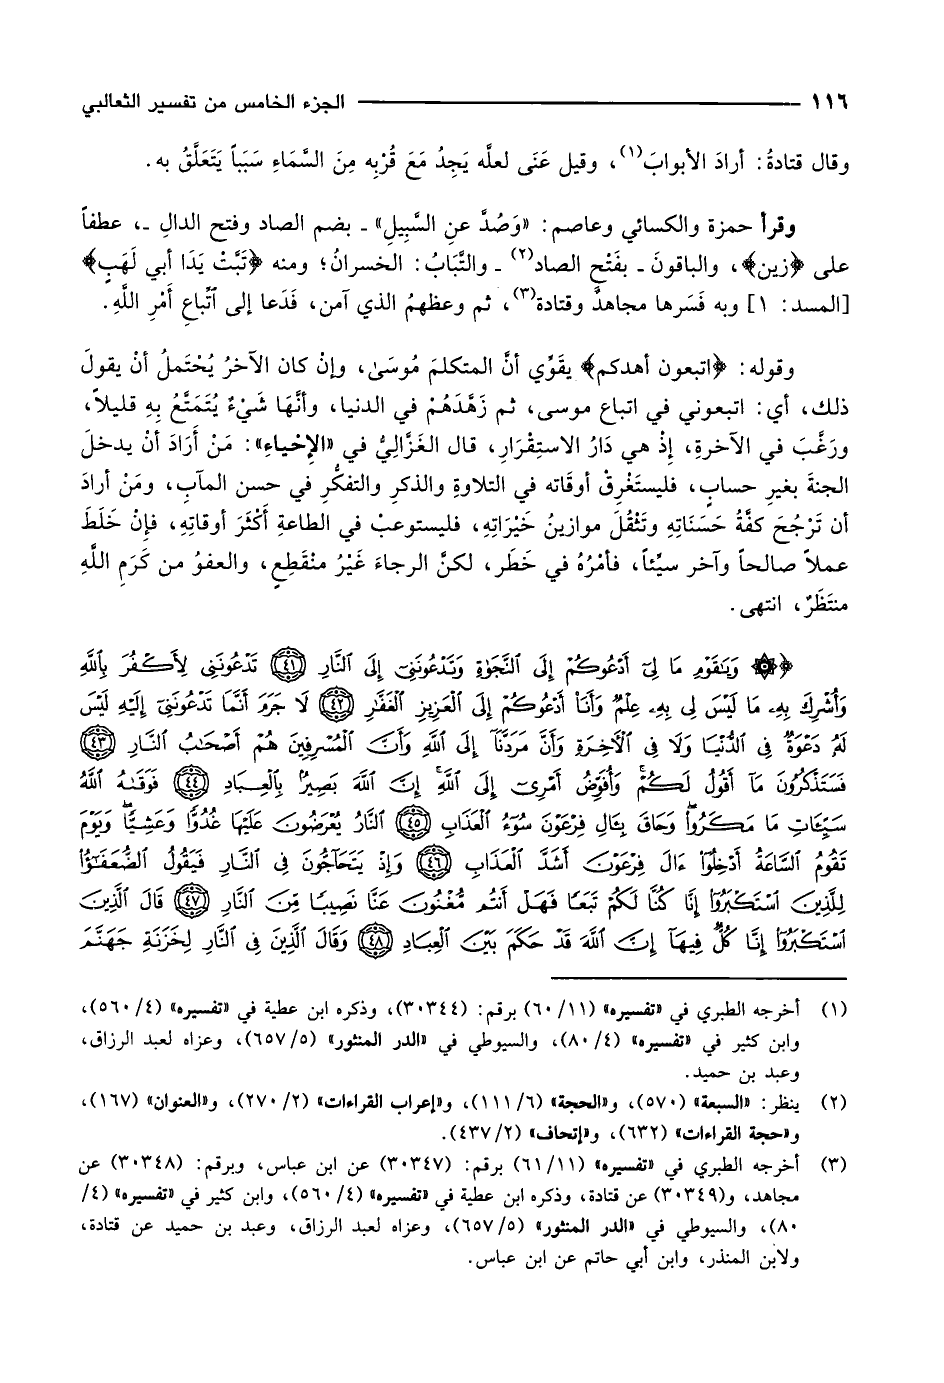 ١١٦ ــــــــــــــــــــ الجزء الخامس من تفسير الثعالبي
وقال قتادةُ: أرادَ الأبوابَ(١)، وقيل عَنَى لعلَّه يَجِدُ مَعَ قُرْبِه مِنَ السَّمَاءِ سَبَباً يَتَعَلَّقُ به.
وقرأ حمزة والكسائي وعاصم: «وَصُدَّ عنِ السَّبِيلِ» ـ بضم الصاد وفتح الدالِ ـ، عطفاً
على ﴿زين﴾، والباقونَ ـ بفَتْحِ الصاد(٢) ـ والتَّبَابُ: الخسرانُ؛ ومنه ﴿تَبَّتْ يَدَا أبي لَهَبٍ﴾
[المسد: ١] وبه فَسَرها مجاهدٌ وقتادة(٣)، ثم وعظهمُ الذي آمن، فَدَعا إلى اتِّباعِ أَمْرِ اللَّهِ.
وقوله: ﴿اتبعون أهدكم﴾ يقَوِّي أنَّ المتكلمَ مُوسَى، وإنْ كان الآخرُ يُحْتَملُ أنْ يقولَ
ذلك، أي: اتبعوني في اتباع موسى، ثم زَهَّدَهُمْ في الدنيا، وأنَّهَا شَيْءٌ يُتَمَتَّعُ بِهِ قليلاً،
ورَغَّبَ في الآخرةِ، إذْ هي دَارُ الاستِقْرَارِ، قال الغَزَّالِيُّ في «الإحْيَاءِ»: مَنْ أَرَادَ أنْ يدخلَ
الجنةَ بغيرِ حسابٍ، فليستَغْرِقْ أوقاته في التلاوةِ والذكرِ والتفكُّرِ في حسن المآبِ، ومَنْ أرادَ
أن تَرْجُحَ كفَّةُ حَسَنَاتِهِ وتَثْقُلَ موازينُ خَيْرَاتِهِ، فليستوعبْ في الطاعةِ أَكْثَرَ أوقاتِهِ، فإنْ خَلَطَ
عملاً صالحاً وآخر سيِّئاً، فأمْرُهُ في خَطَر، لكنَّ الرجاءَ غَيْرُ منْقَطِعٍ، والعفوُ من كَرَمِ اللَّهِ
منتَظَرٌ، انتهى.
﴿۞ وَيَٰقَوْمِ مَا لِىٓ أَدْعُوكُمْ إِلَى ٱلنَّجَوٰةِ وَتَدْعُونَنِىٓ إِلَى ٱلنَّارِ ٤١ تَدْعُونَنِى لِأَكْفُرَ بِٱللَّهِ
وَأُشْرِكَ بِهِۦ مَا لَيْسَ لِى بِهِۦ عِلْمٌ وَأَنَا۠ أَدْعُوكُمْ إِلَى ٱلْعَزِيزِ ٱلْغَفَّٰرِ ٤٢ لَا جَرَمَ أَنَّمَا تَدْعُونَنِىٓ إِلَيْهِ لَيْسَ
لَهُۥ دَعْوَةٌ فِى ٱلدُّنْيَا وَلَا فِى ٱلْأَخِرَةِ وَأَنَّ مَرَدَّنَآ إِلَى ٱللَّهِ وَأَنَّ ٱلْمُسْرِفِينَ هُمْ أَصْحَٰبُ ٱلنَّارِ ٤٣
فَسَتَذْكُرُونَ مَآ أَقُولُ لَكُمْ ۚ وَأُفَوِّضُ أَمْرِىٓ إِلَى ٱللَّهِ ۚ إِنَّ ٱللَّهَ بَصِيرٌۢ بِٱلْعِبَادِ ٤٤ فَوَقَىٰهُ ٱللَّهُ
سَيِّـَٔاتِ مَا مَكَرُوا۟ ۖ وَحَاقَ بِـَٔالِ فِرْعَوْنَ سُوٓءُ ٱلْعَذَابِ ٤٥ ٱلنَّارُ يُعْرَضُونَ عَلَيْهَا غُدُوًّا وَعَشِيًّا ۖ وَيَوْمَ
تَقُومُ ٱلسَّاعَةُ أَدْخِلُوٓا۟ ءَالَ فِرْعَوْنَ أَشَدَّ ٱلْعَذَابِ ٤٦ وَإِذْ يَتَحَآجُّونَ فِى ٱلنَّارِ فَيَقُولُ ٱلضُّعَفَٰٓؤُا۟
لِلَّذِينَ ٱسْتَكْبَرُوٓا۟ إِنَّا كُنَّا لَكُمْ تَبَعًا فَهَلْ أَنتُم مُّغْنُونَ عَنَّا نَصِيبًا مِّنَ ٱلنَّارِ ٤٧ قَالَ ٱلَّذِينَ
ٱسْتَكْبَرُوٓا۟ إِنَّا كُلٌّ فِيهَآ إِنَّ ٱللَّهَ قَدْ حَكَمَ بَيْنَ ٱلْعِبَادِ ٤٨ وَقَالَ ٱلَّذِينَ فِى ٱلنَّارِ لِخَزَنَةِ جَهَنَّمَ
(١) أخرجه الطبري في «تفسيره» (١١/ ٦٠) برقم: (٣٠٣٤٤)، وذكره ابن عطية في «تفسيره» (٤/ ٥٦٠)،
وابن كثير في «تفسيره» (٤/ ٨٠)، والسيوطي في «الدر المنثور» (٥/ ٦٥٧)، وعزاه لعبد الرزاق،
وعبد بن حميد.
(٢) ينظر: «السبعة» (٥٧٠)، و«الحجة» (٦/ ١١١)، و«إعراب القراءات» (٢/ ٢٧٠)، و«العنوان» (١٦٧)،
و«حجة القراءات» (٦٣٢)، و«إتحاف» (٢/ ٤٣٧).
(٣) أخرجه الطبري في «تفسيره» (١١/ ٦١) برقم: (٣٠٣٤٧) عن ابن عباس، وبرقم: (٣٠٣٤٨) عن
مجاهد، و(٣٠٣٤٩) عن قتادة، وذكره ابن عطية في «تفسيره» (٤/ ٥٦٠)، وابن كثير في «تفسيره» (٤/
٨٠)، والسيوطي في «الدر المنثور» (٥/ ٦٥٧)، وعزاه لعبد الرزاق، وعبد بن حميد عن قتادة،
ولابن المنذر، وابن أبي حاتم عن ابن عباس.